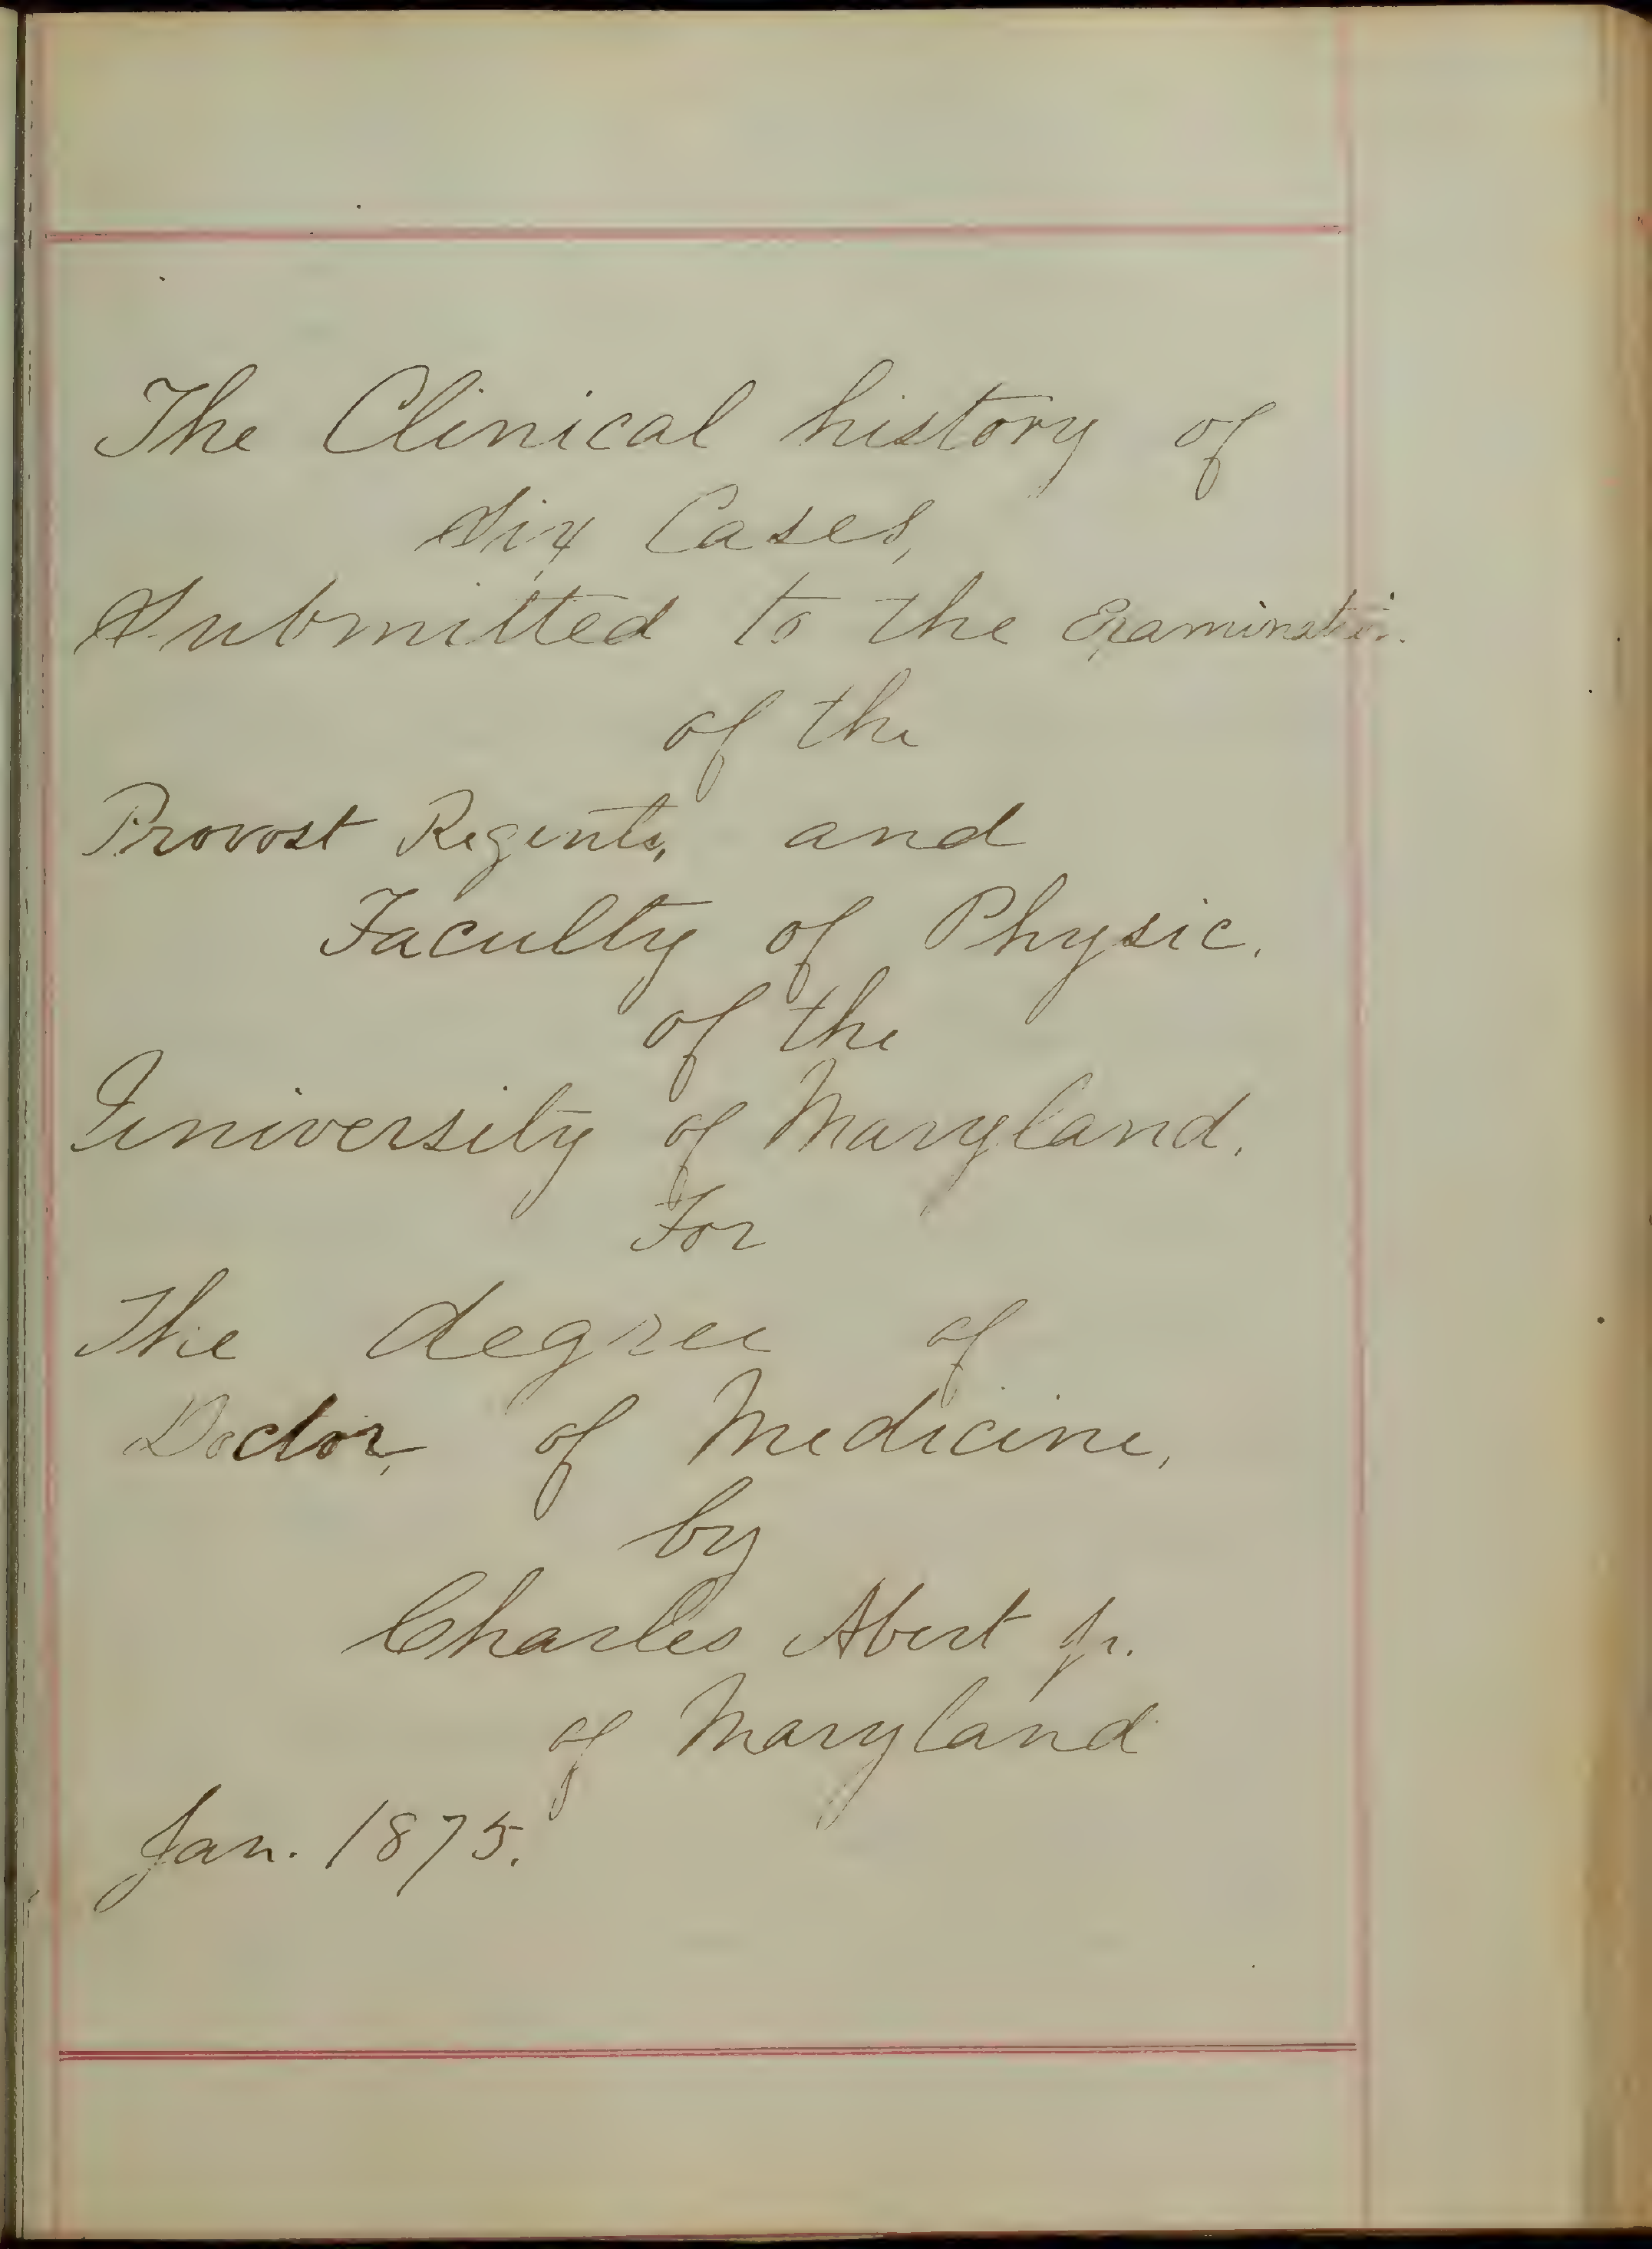 The Clinical history of
Six Cases,
Submitted to the Examination
of the
Provost Regents, and
Faculty of Physic.
of the
University of Maryland.
For
The degree of
Doctor, of Medicine,
by
Charles Abert Jr.
of Maryland
Jan. 1875.